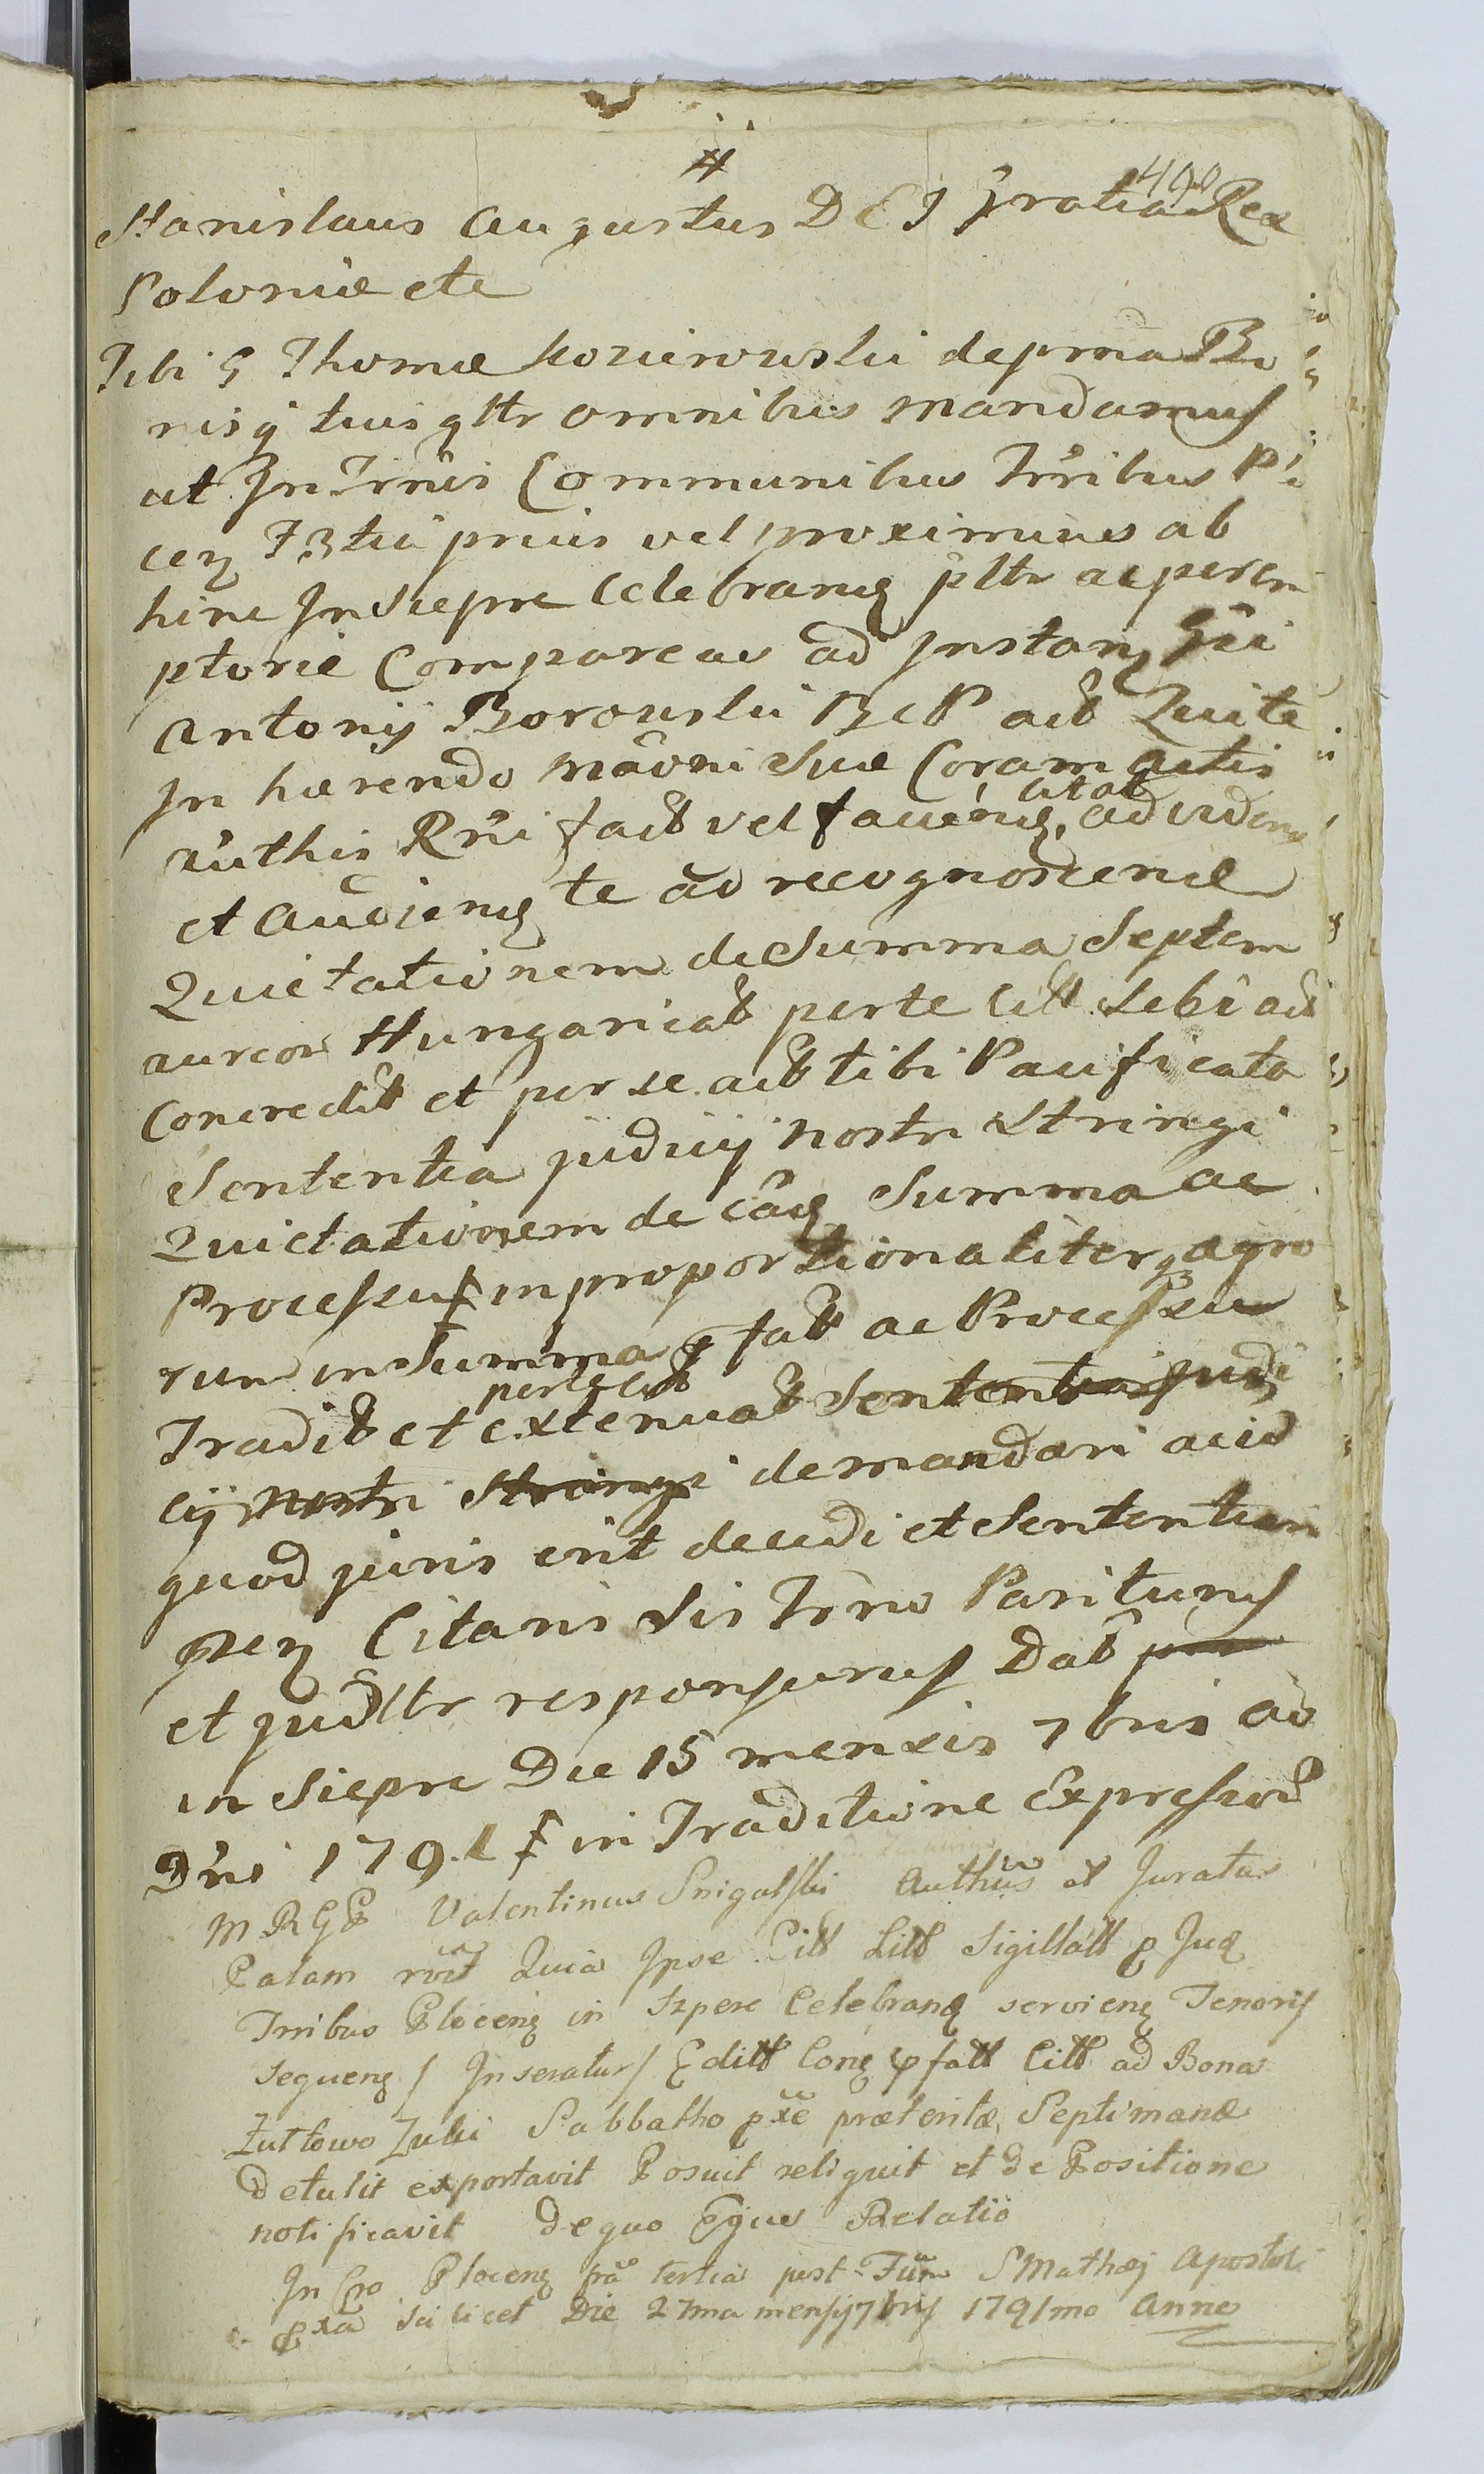 #
400
Stanislaus Augustus DEI gratia Rex
Poloniæ etc
Tibi G Thomæ deprna Bo
nisq tuis gltr omnibus mandamus
ut In Trnis Communibus Trribus
prius vel proximius ab
hinc In Siepre Celebranq pltr ac perem
ptorie Compareas ad Instanq Gsi
Antonij Borowski act Quite
In hærendo Suæ Coram actis
authis Rni fact vel faciend, citat ad viden
et Audienq te ad recognoscend
Quietationem de Summa Septem
aureor Hungarical per te Citt Sebi act
Concredit et per se act tibi Pacificata
Sententia judicij nostri Stringi
Quietationem de eadq Summa ac
Processus ‡ in proportionaliter agro
rum in Summa fatt ac Processu
Tradit et per te citt extenuat Sententia Judi
cij nostri Stringi demandari acid
quod juris erit decidi et Sententiam
Citaris Sis Trno Pariturus
et Judltr responsurus Dat
in Siepre Die 15 mensis 7bris ad
Dni 1791 ‡ in Traditione Expressor
M R G Valentinus Snigulski Authus et Juratus
Palam Quia Ipse Citt Litt Sigillatt p Jud
Trribus Plocenq in Szpere Celebranq servienq Tenoris
sequenq / Inseratur / Editt Conq pfatt Citt ad Bona
Żuttowo Żuki Sabbatho pxe præteritæ Septimanæ
detulit exportavit Posuit reliquit et de Positione
notificavit de quo Ejus Relatio
In Cro Plocenq fra tertia post Fum S Mathæj Apostoli
pxa scilicet Die 27ma mensij 7bris 1791mo Anno